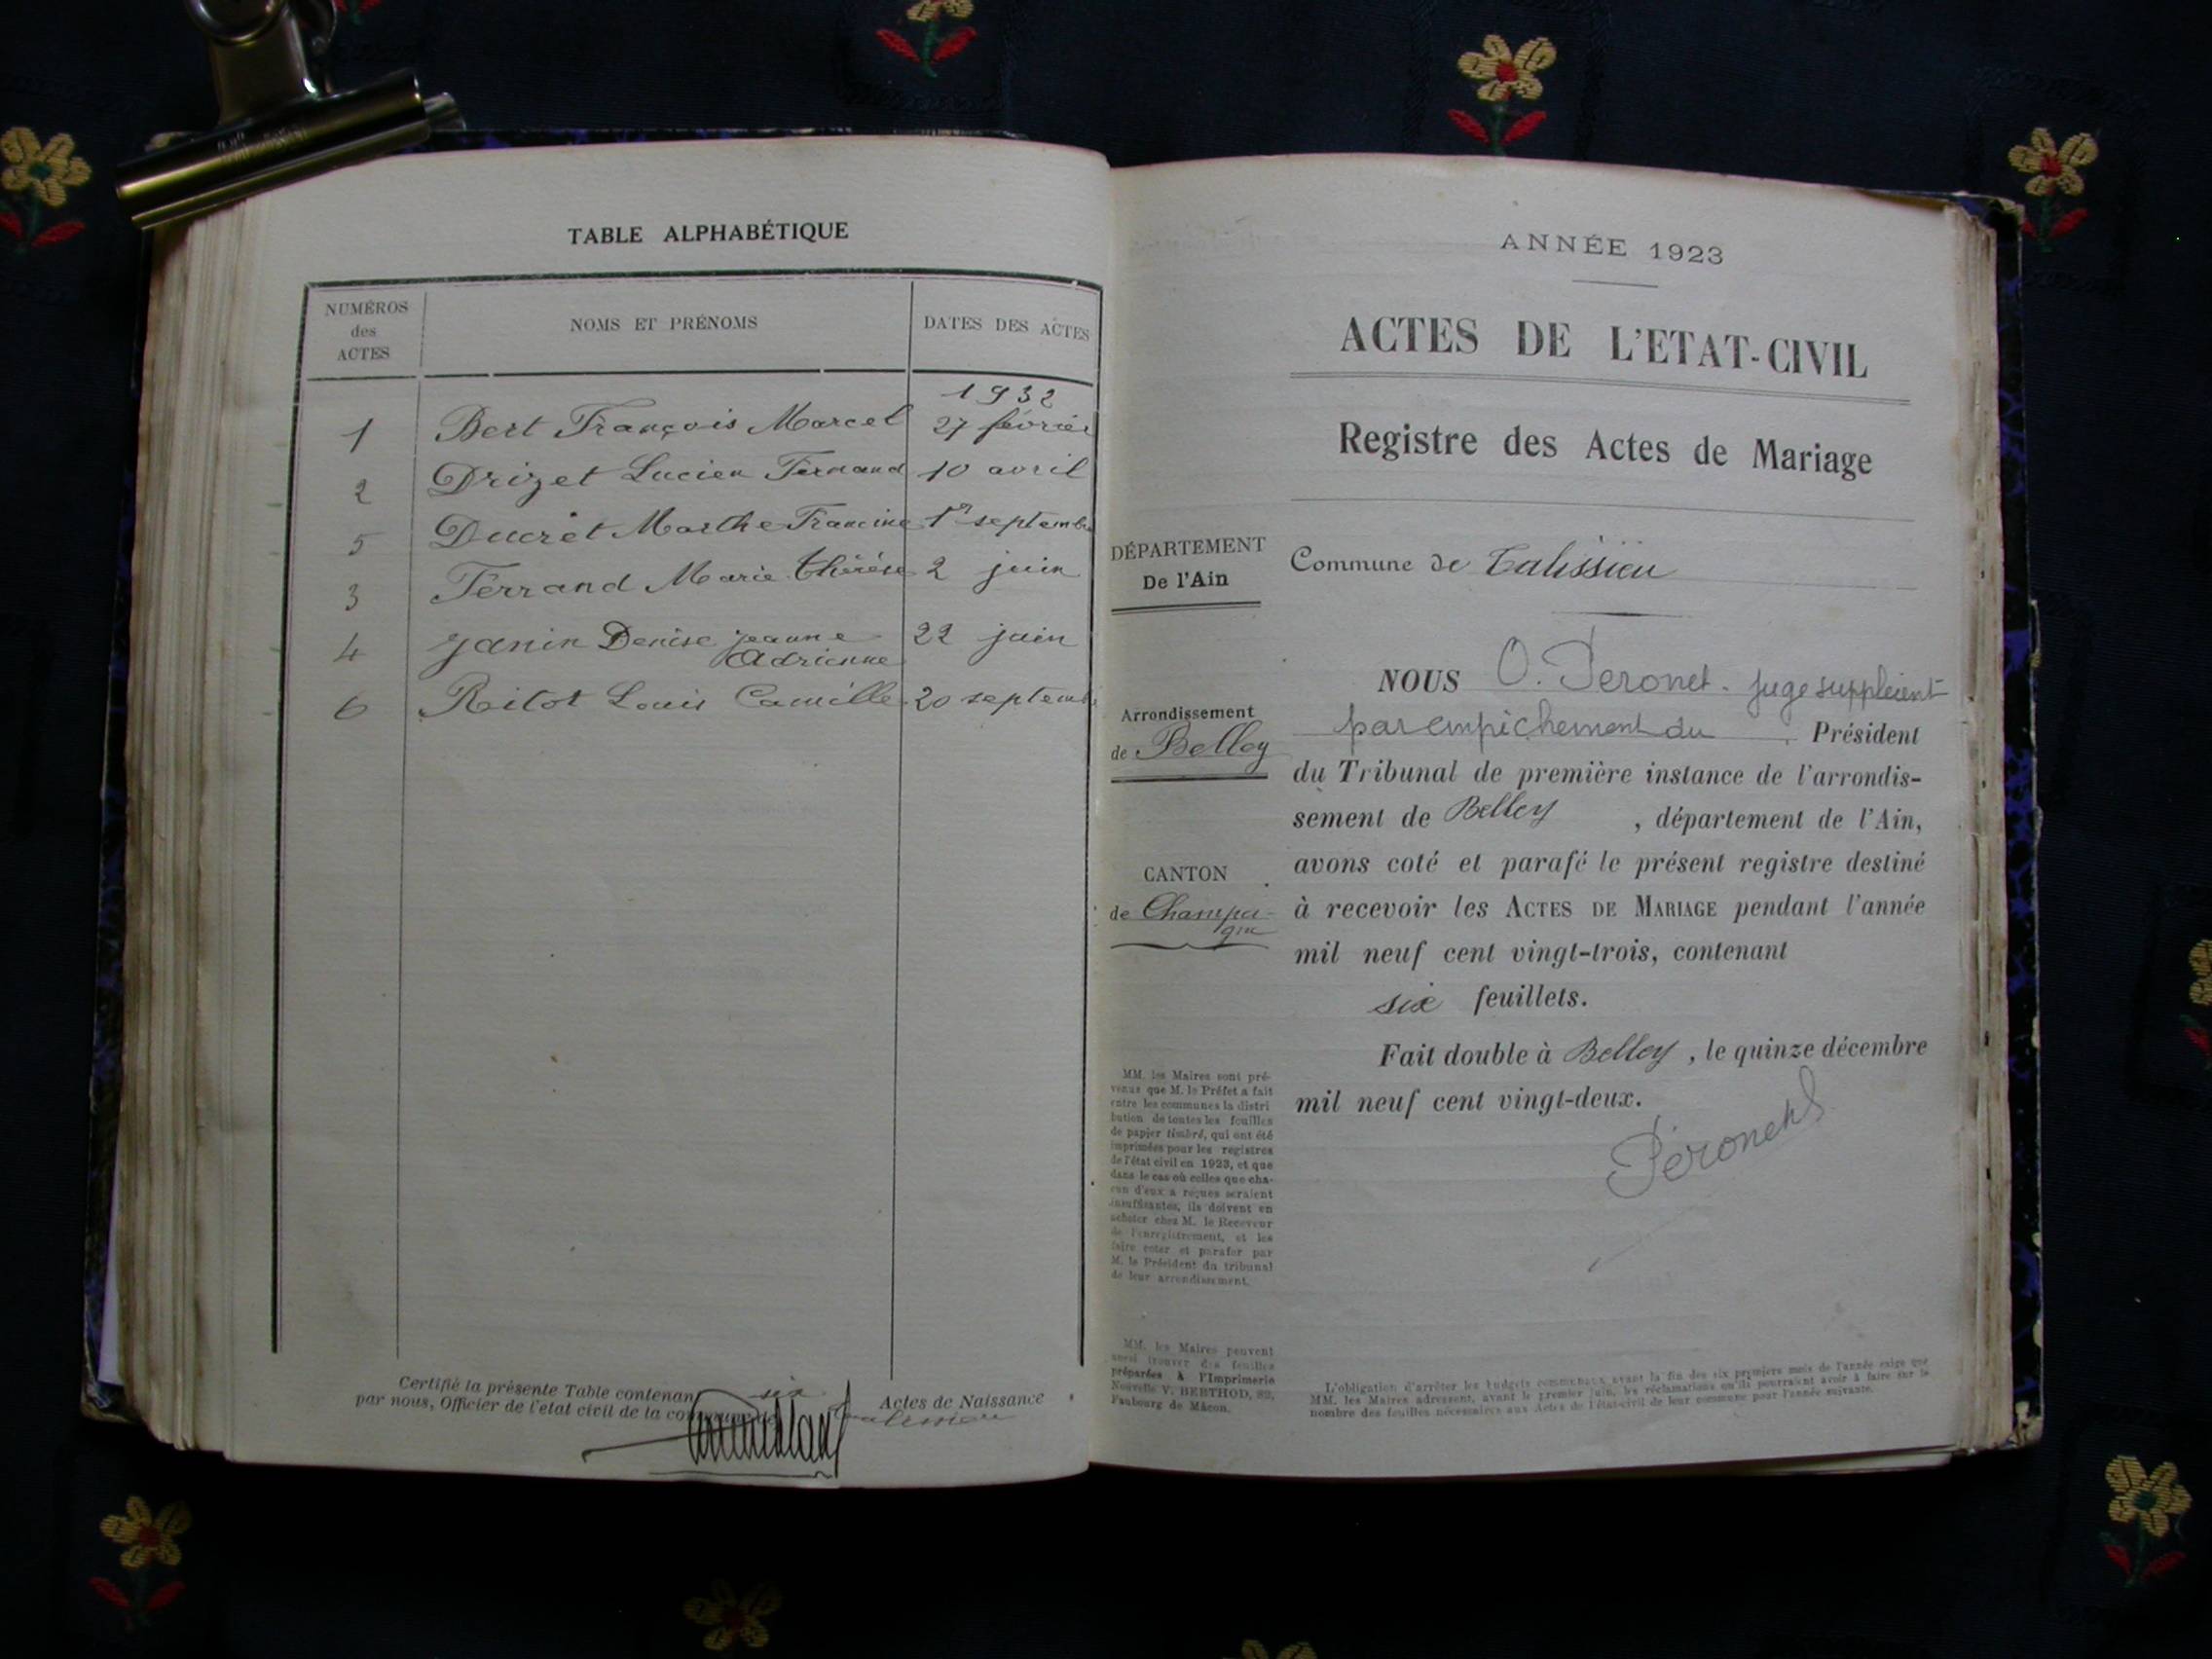 TABLE ALPHABÉTIQUE
NUMÉROS des ACTES NOMS ET PRÉNOMS DATES DES ACTES
1932
1 Bert François Marcel 27 février
2 Drizet Lucien Fernand 10 avril
5 Ducret Marthe Francine 1er septembre
3 Ferrand Marie Thérèse 2 juin
4 Janin Denise Jeanne 22 juin
Adrienne
6 Ritot Louis Camille 20 septemb
Certifié la présente Table contenant six Actes de Naissance
par nous, Officier de l'état civil de la commune de Talissieu
ANNÉE 1923
ACTES DE L'ETAT-CIVIL
Registre des Actes de Mariage
DÉPARTEMENT
De l'Ain
Commune de Talissieu
Arrondissement
de Belley
CANTON
de Champa-
gne
NOUS O. Peronet. juge suppléent
par empêchement du Président
du Tribunal de première instance de l'arrondis-
sement de Belley, département de l'Ain,
avons coté et parafé le présent registre destiné
à recevoir les ACTES DE MARIAGE pendant l'année
mil neuf cent vingt-trois, contenant
six feuillets.
Fait double à Belley, le quinze décembre
mil neuf cent vingt-deux.
Péronet
MM. les Maires sont pré-
venus que M. le Préfet a fait
entre les communes la distri
bution de toutes les feuilles
de papier timbré, qui ont été
imprimées pour les registres
de l'état civil en 1923, et que
dans le cas où celles que cha-
cun d'eux a reçues seraient
insuffisantes, ils doivent en
acheter chez M. le Receveur
de l'enregistrement, et les
faire coter et parafer par
M. le Président du tribunal
de leur arrondissement.
MM. les Maires peuvent
aussi trouver des feuilles
préparées à l'Imprimerie
Nouvelle V. BERTHOD, 82,
Faubourg de Mâcon.
L'obligation d'arrêter les budgets communaux avant la fin des six premiers mois de l'année exige que
MM. les Maires adressent, avant le premier juin, les réclamations qu'ils pourraient avoir à faire sur le
nombre des feuilles nécessaires aux Actes de l'état-civil de leur commune pour l'année suivante.